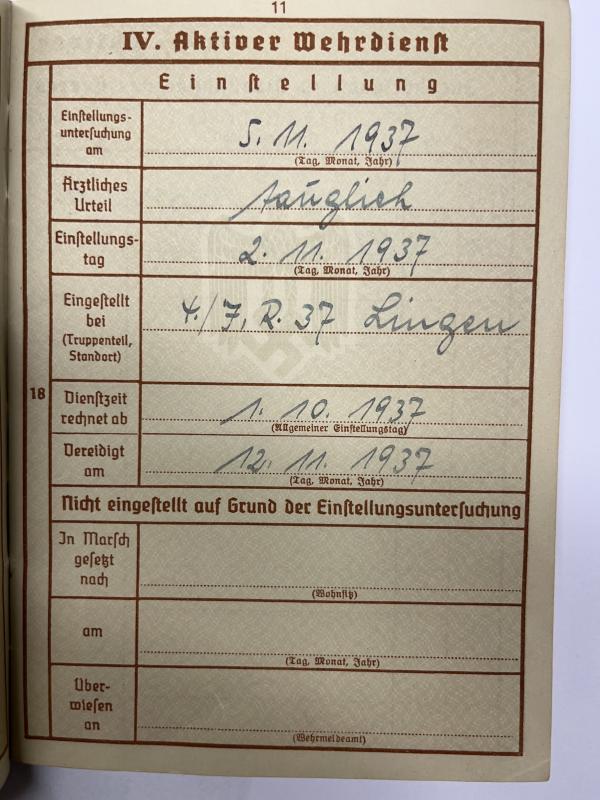 11
IV. Aktiver Wehrdienst
Einstellung
Einstellungs-
untersuchung
am
5. 11. 1937
(Tag, Monat, Jahr)
Ärztliches
Urteil
tauglich
Einstellungs-
tag
2. 11. 1937
(Tag, Monat, Jahr)
Eingestellt
bei
(Truppenteil,
Standort)
4./J. R. 37 Lingen
18
Dienstzeit
rechnet ab
1. 10. 1937
(Allgemeiner Einstellungstag)
Vereidigt
am
12. 11. 1937
(Tag, Monat, Jahr)
Nicht eingestellt auf Grund der Einstellungsuntersuchung
In Marsch
gesetzt
nach
(Wohnsitz)
am
(Tag, Monat, Jahr)
Über-
wiesen
an
(Wehrmeldeamt)